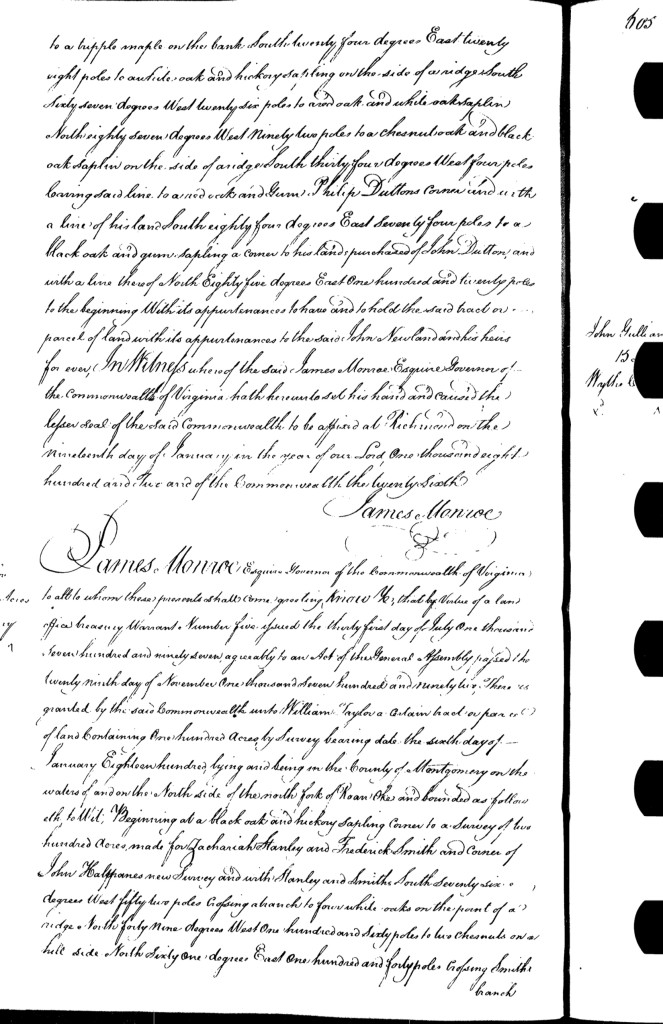 to a tripple maple on the bank South twenty four degrees East twenty
eight poles to a white oak and hickory sapling on the side of a ridge South
Sixty seven degrees West twenty six poles to a red oak and white oak saplin
North eighty seven degrees West Ninety two poles to a chesnut oak and black
oak saplin on the side of a ridge South thirty four degrees West four poles
leaving said line to a red oak and Gum Philip Duttons Corner and with
a line of his land South eighty four degrees East Seventy four poles to a
black oak and gum sapling a corner to his land purchased of John Dutton and
with a line there of North Eighty five degrees East One hundred and twenty poles
to the beginning With its appurtenances to have and to hold the said tract or
parcel of land with its appurtenances to the said John Newland and his heirs
for ever, In Witness where of the said James Monroe Esquire Governor of
the Commonwealth of Virginia hath hereunto set his hand and caused the
lesser seal of the said Commonwealth to be affixed at Richmond on the
nineteenth day of January in the year of our Lord One thousand eight
hundred and Two and of the Commonwealth the twenty Sixth
James Monroe
James Monroe Esquire Governor of the Commonwealth of Virginia
to all to whom these presents shall come greeting, Know Ye, that by Virtue of a land
office treasury Warrant Number five issued the thirty first day of July One thousand
Seven hundred and ninety seven, agreeably to an Act of the General Assembly passed the
twenty ninth day of November One thousand Seven hundred and ninety two. There is
granted by the said Commonwealth unto William Taylor a Certain tract or parcel
of land Containing One hundred Acres by Survey bearing date the sixth day of
January Eighteen hundred, lying and being in the County of Montgomery on the
waters of and on the North side of the north fork of Roan Oke and bounded as follow
eth to Wit; Beginning at a black oak and hickory sapling Corner to a Survey of two
hundred Acres made for Zachariah Stanley and Frederick Smith and Corner of
John Halfpanes new Survey and with Stanley and Smiths South Seventy six
degrees West fifty two poles Crossing a branch to four white oaks on the point of a
ridge North forty nine degrees West One hundred and Sixty poles to two chesnuts on a
hill side North Sixty One degrees East One hundred and forty poles Crossing Smiths
branch
Acres
605
John
15
Wythe